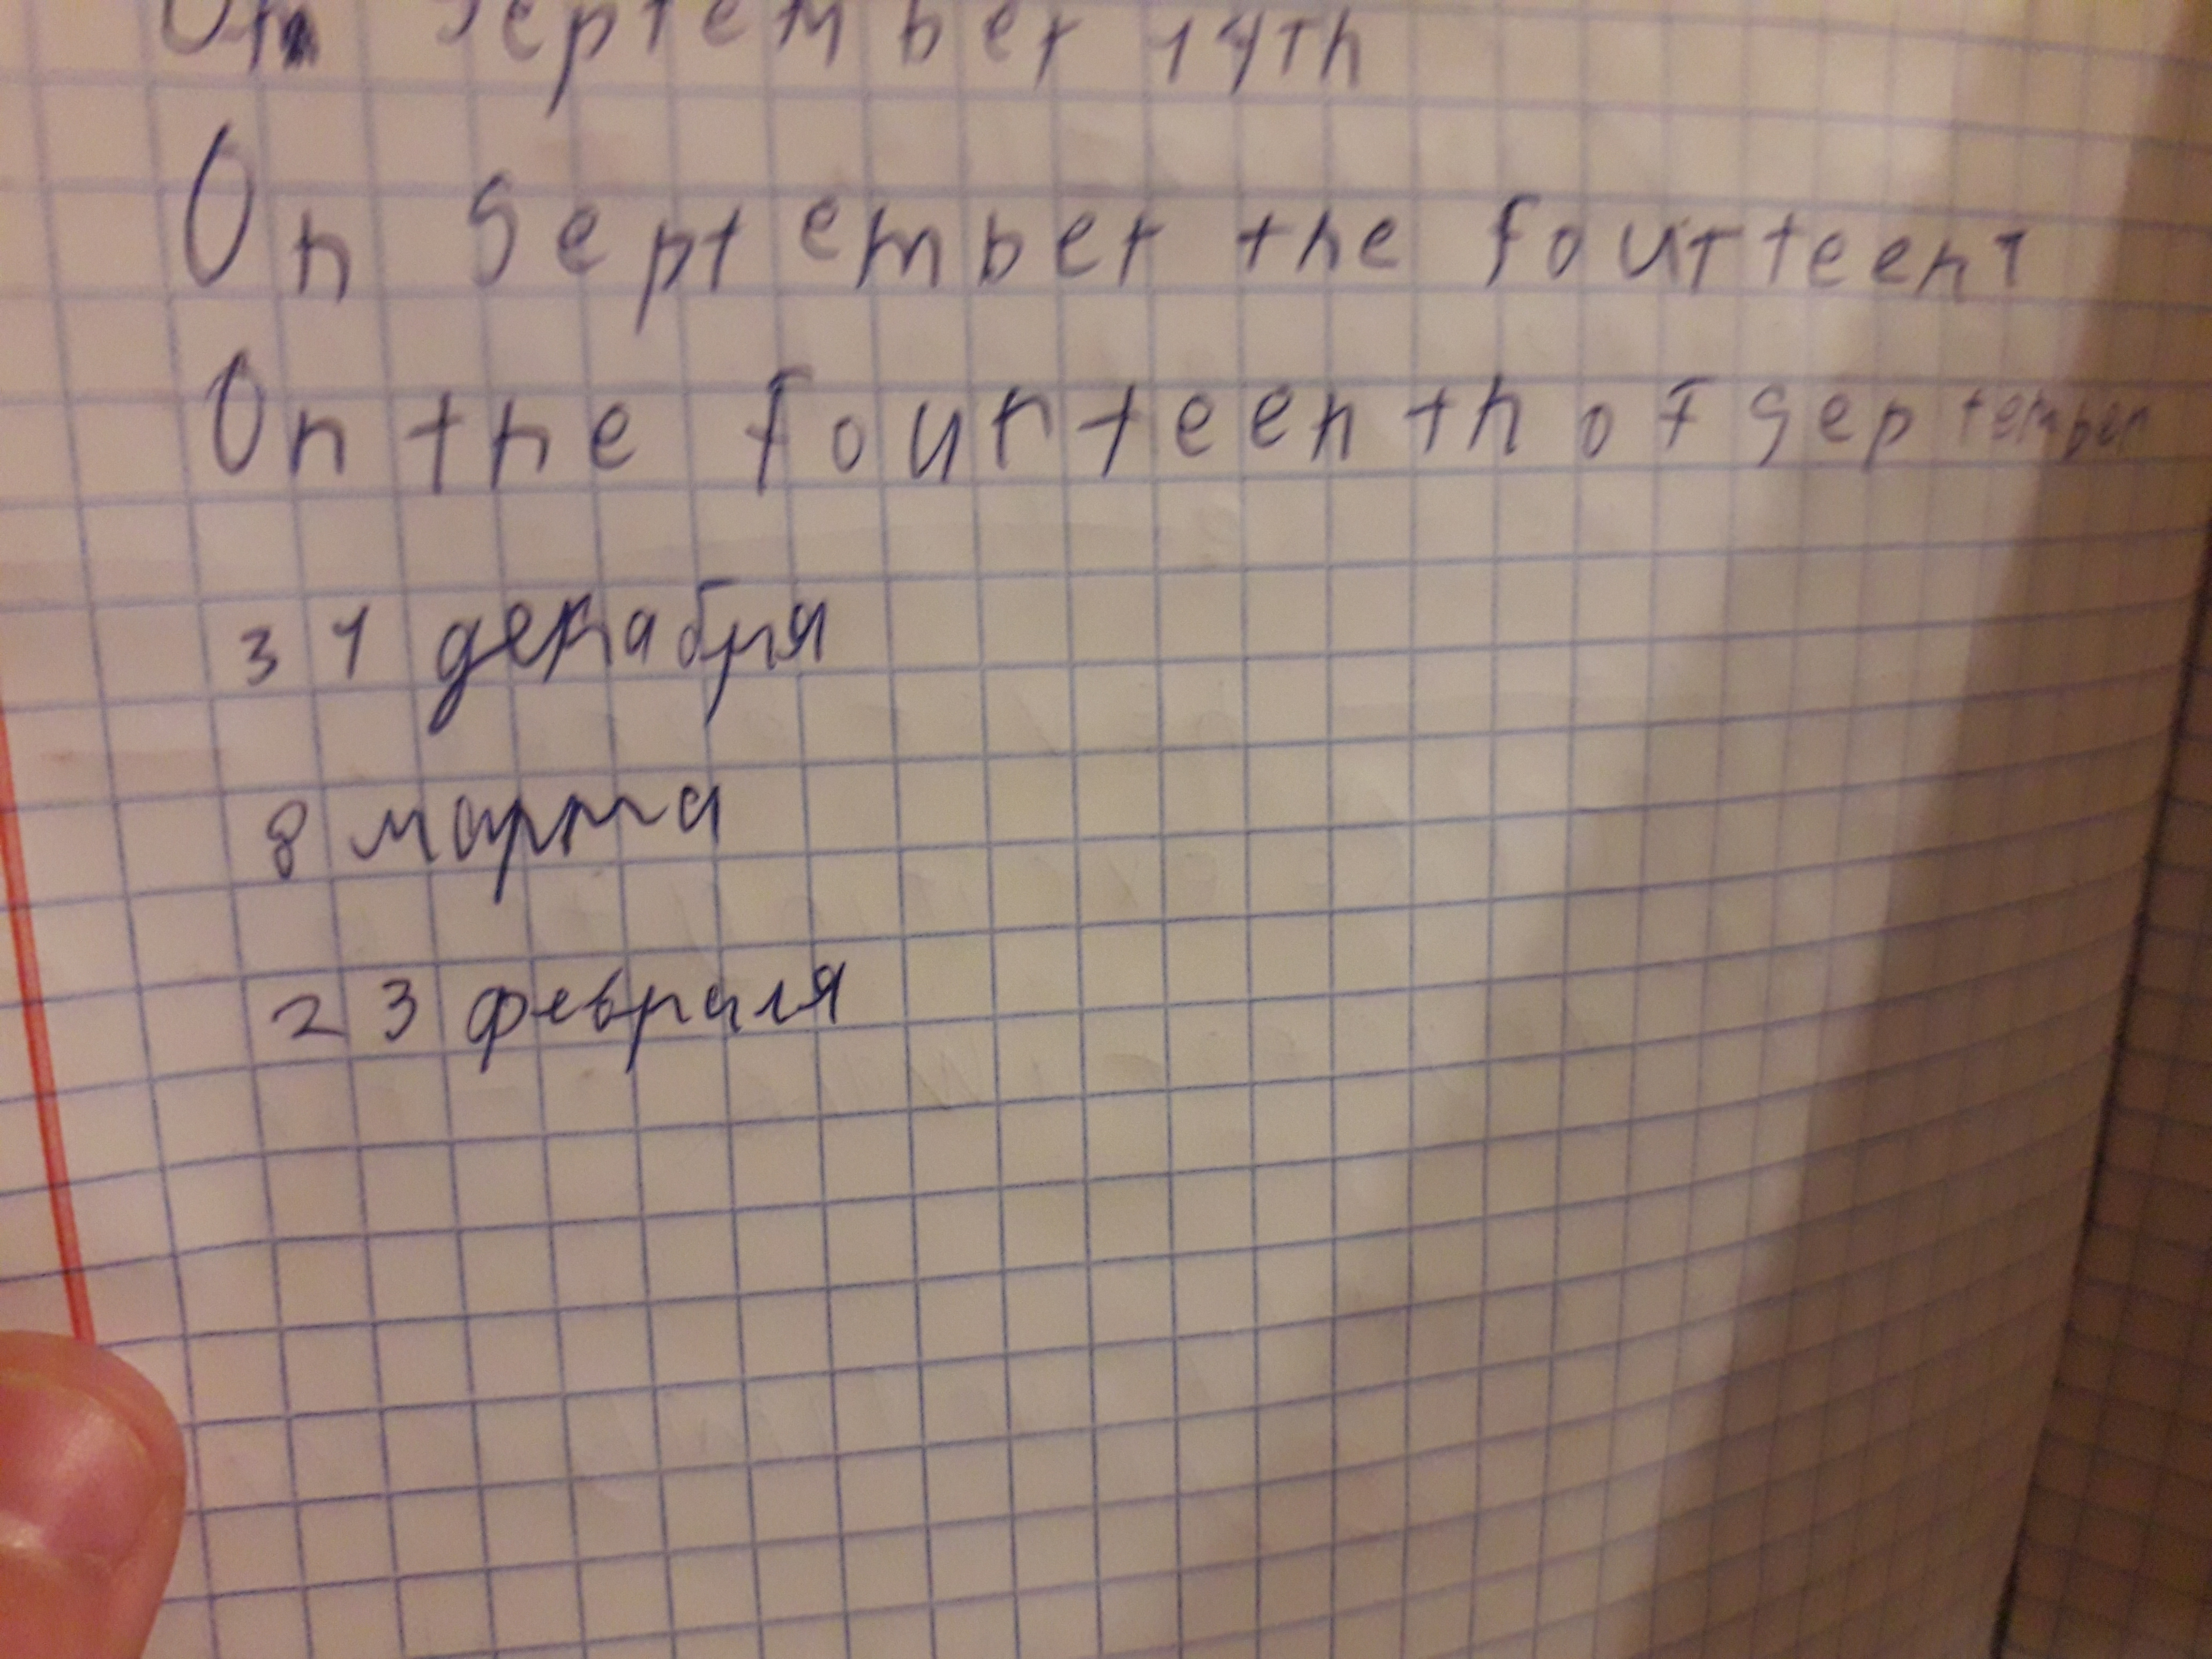 On September 14th
On September the fourteent
On the fourteenth of September
31 декабря
8 марта
23 февраля